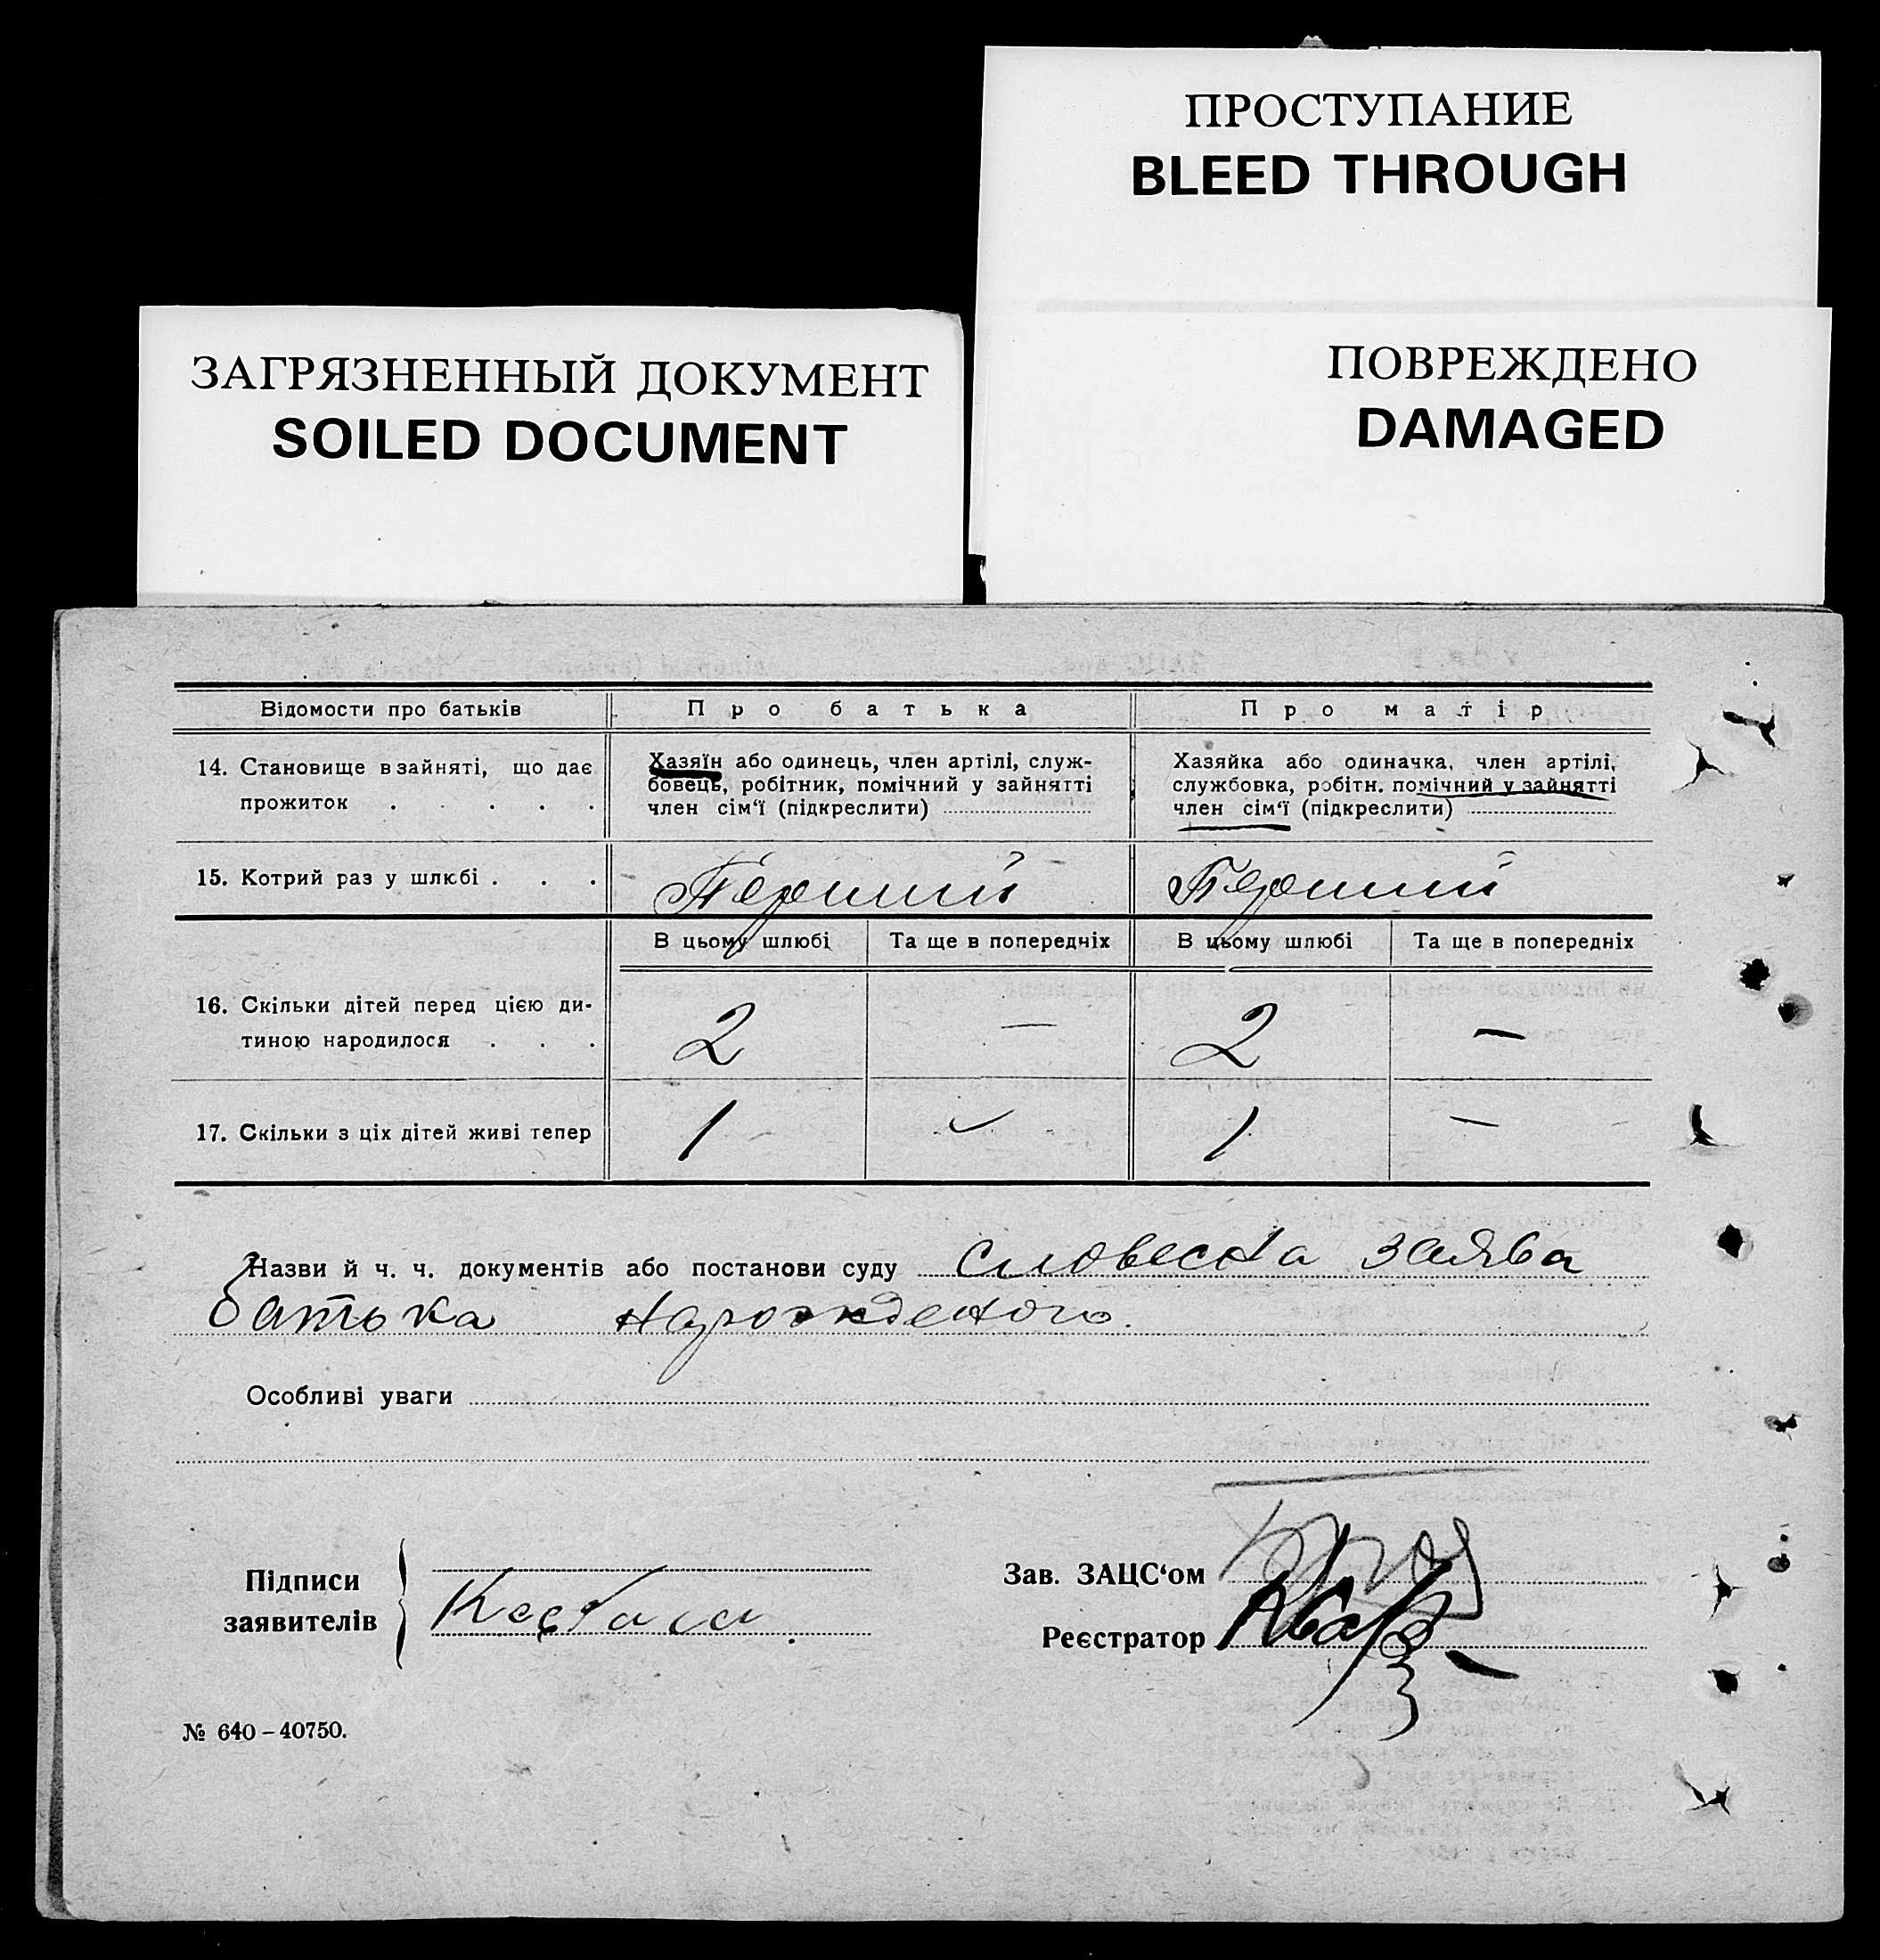 ПРОСТУПАНИЕ
BLEED THROUGH
ЗАГРЯЗНЕННЫЙ ДОКУМЕНТ
SOILED DOCUMENT
ПОВРЕЖДЕНО
DAMAGED
Відомости про батьків Про батька Про матір
14. Становище в зайняті, що дає
прожиток . . . . .
Хазяїн або одинець, член артілі, служ-
бовець, робітник, помічний у зайнятті
член сім‘ї (підкреслити)
Хазяйка або одиначка, член артілі,
службовка, робітн. помічний у зайнятті
член сім‘ї (підкреслити)
15. Котрий раз у шлюбі . . . Перший Перший
В цьому шлюбі Та ще в попередніх В цьому шлюбі Та ще в попередніх
16. Скільки дітей перед цією ди-
тиною народилося . . . 2 — 2 —
17. Скільки з ціх дітей живі тепер 1 — 1 —
Назви й ч. ч. документів або постанови суду словесна заява
батька нарожденого.
Особливі уваги
Підписи
заявителів
Зав. ЗАЦС‘ом
Реєстратор
№ 640–40750.